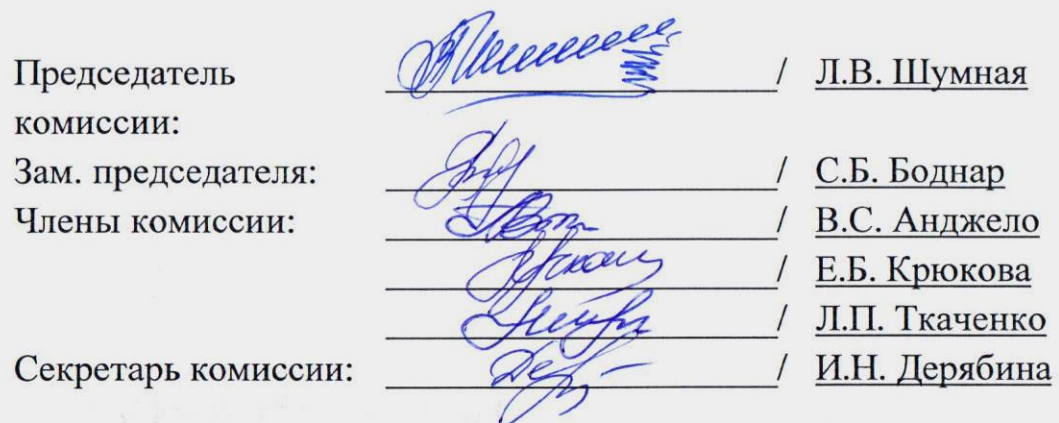 Председатель / Л.В. Шумная
комиссии:
Зам. председателя: / С.Б. Боднар
Члены комиссии: / В.С. Анджело
/ Е.Б. Крюкова
/ Л.П. Ткаченко
Секретарь комиссии: / И.Н. Дерябина